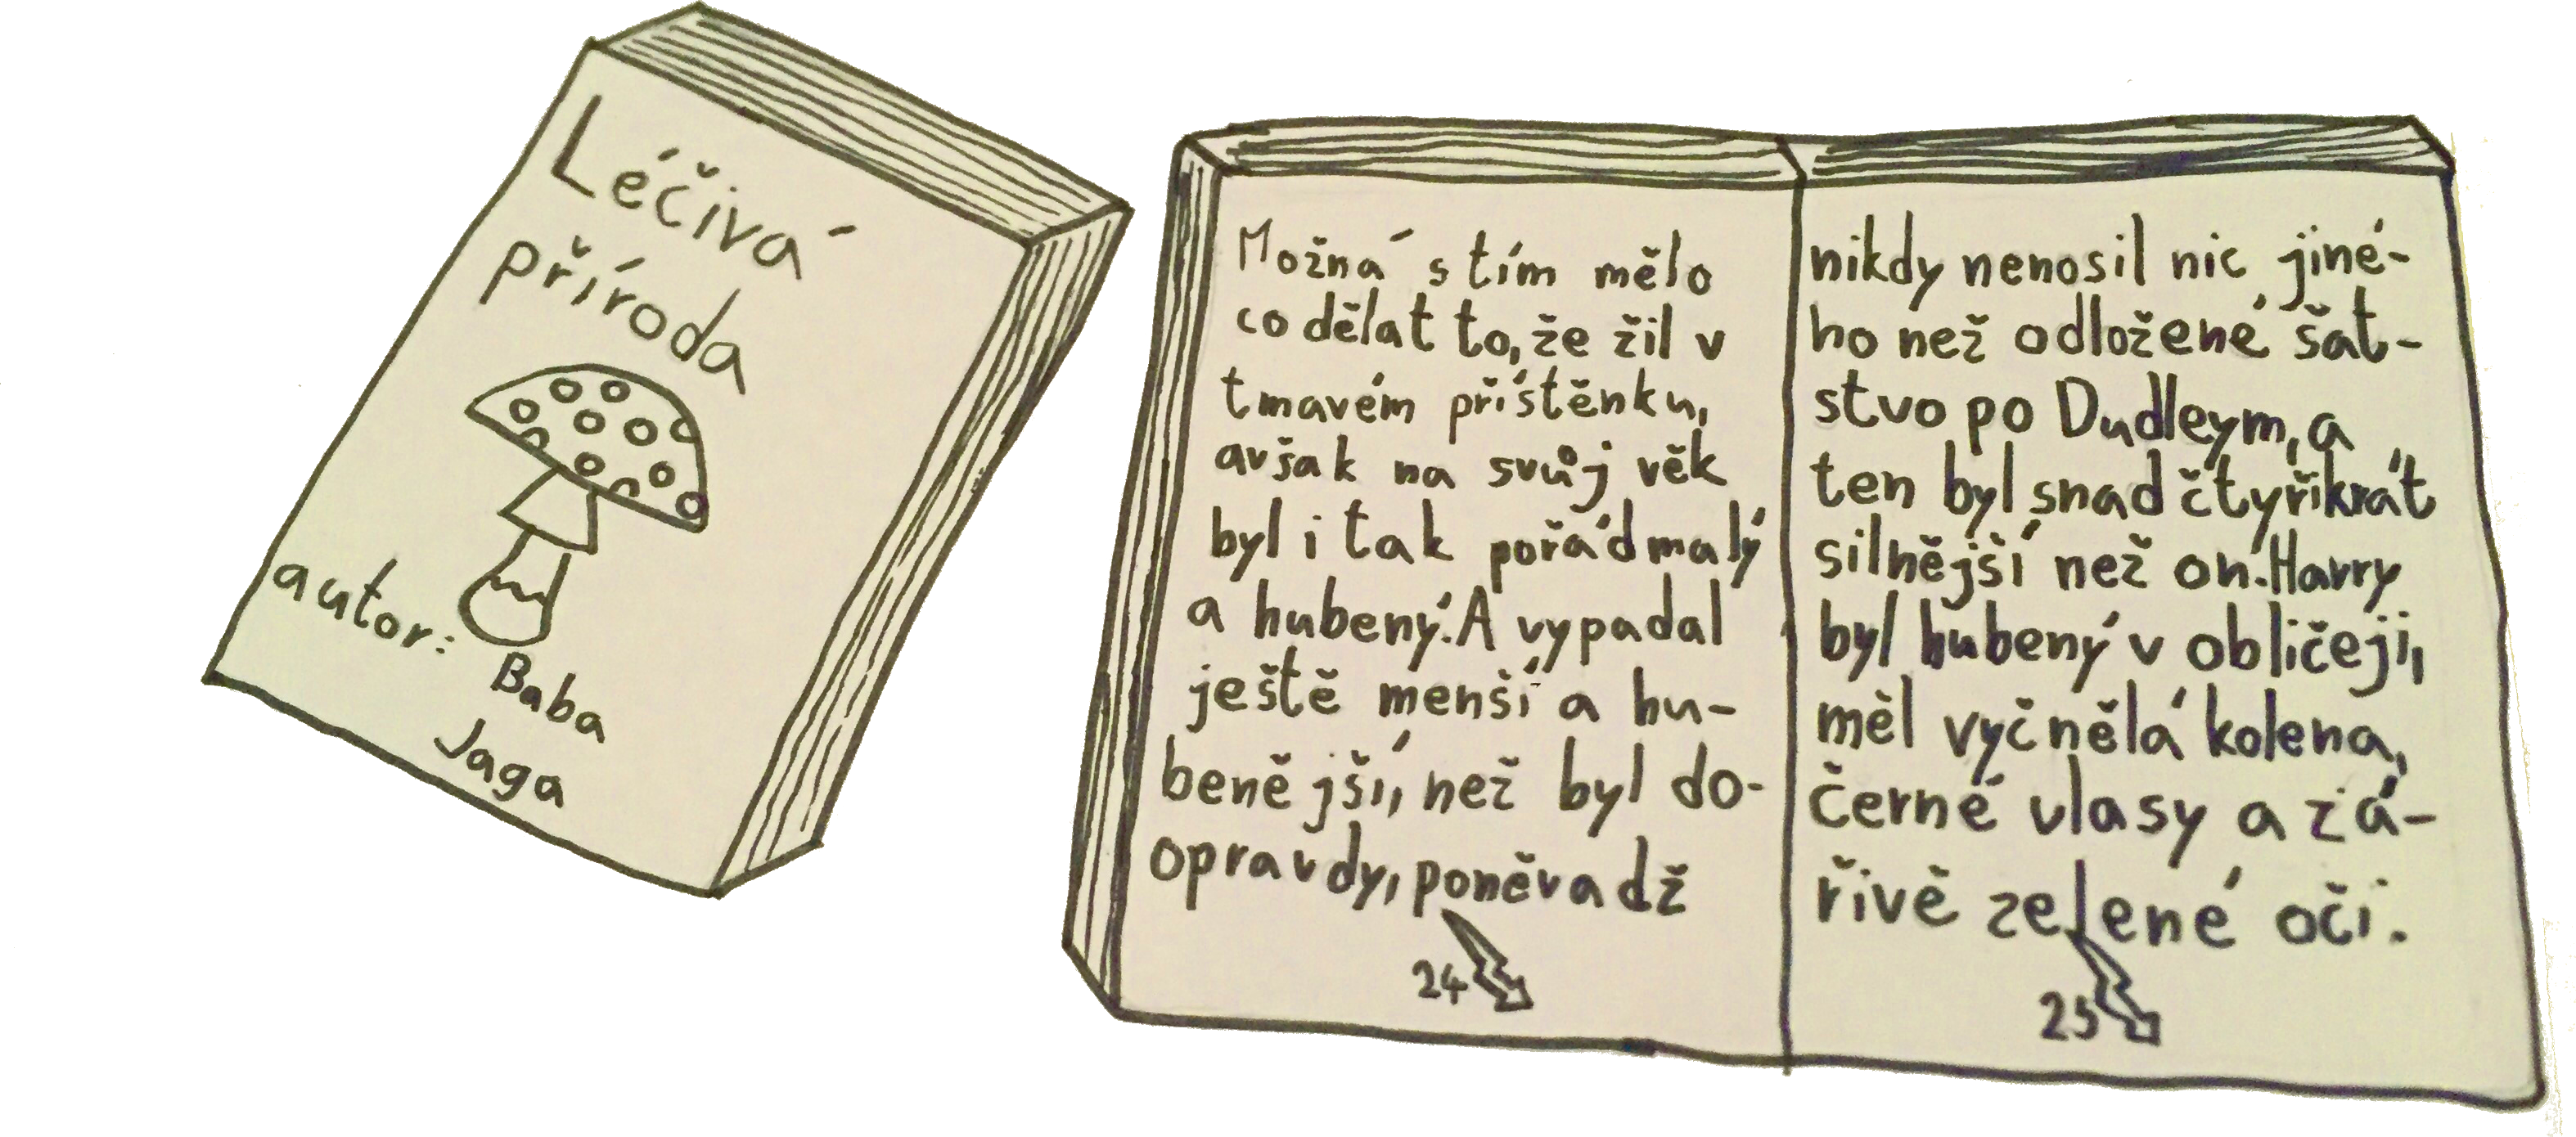 Léčivá
příroda
autor:
Baba
Jaga
Možná s tím mělo
co dělat to, že žil v
tmavém přístěnku,
avšak na svůj věk
byl i tak pořád malý
a hubený. A vypadal
ještě menší a hu-
benější, než byl do-
opravdy, poněvadž
24
nikdy nenosil nic jiné-
ho než odložené šat-
stvo po Dudleym, a
ten byl snad čtyřikrát
silnější než on. Harry
byl hubený v obličeji,
měl vyčnělá kolena,
černé vlasy a zá-
řivě zelené oči.
25